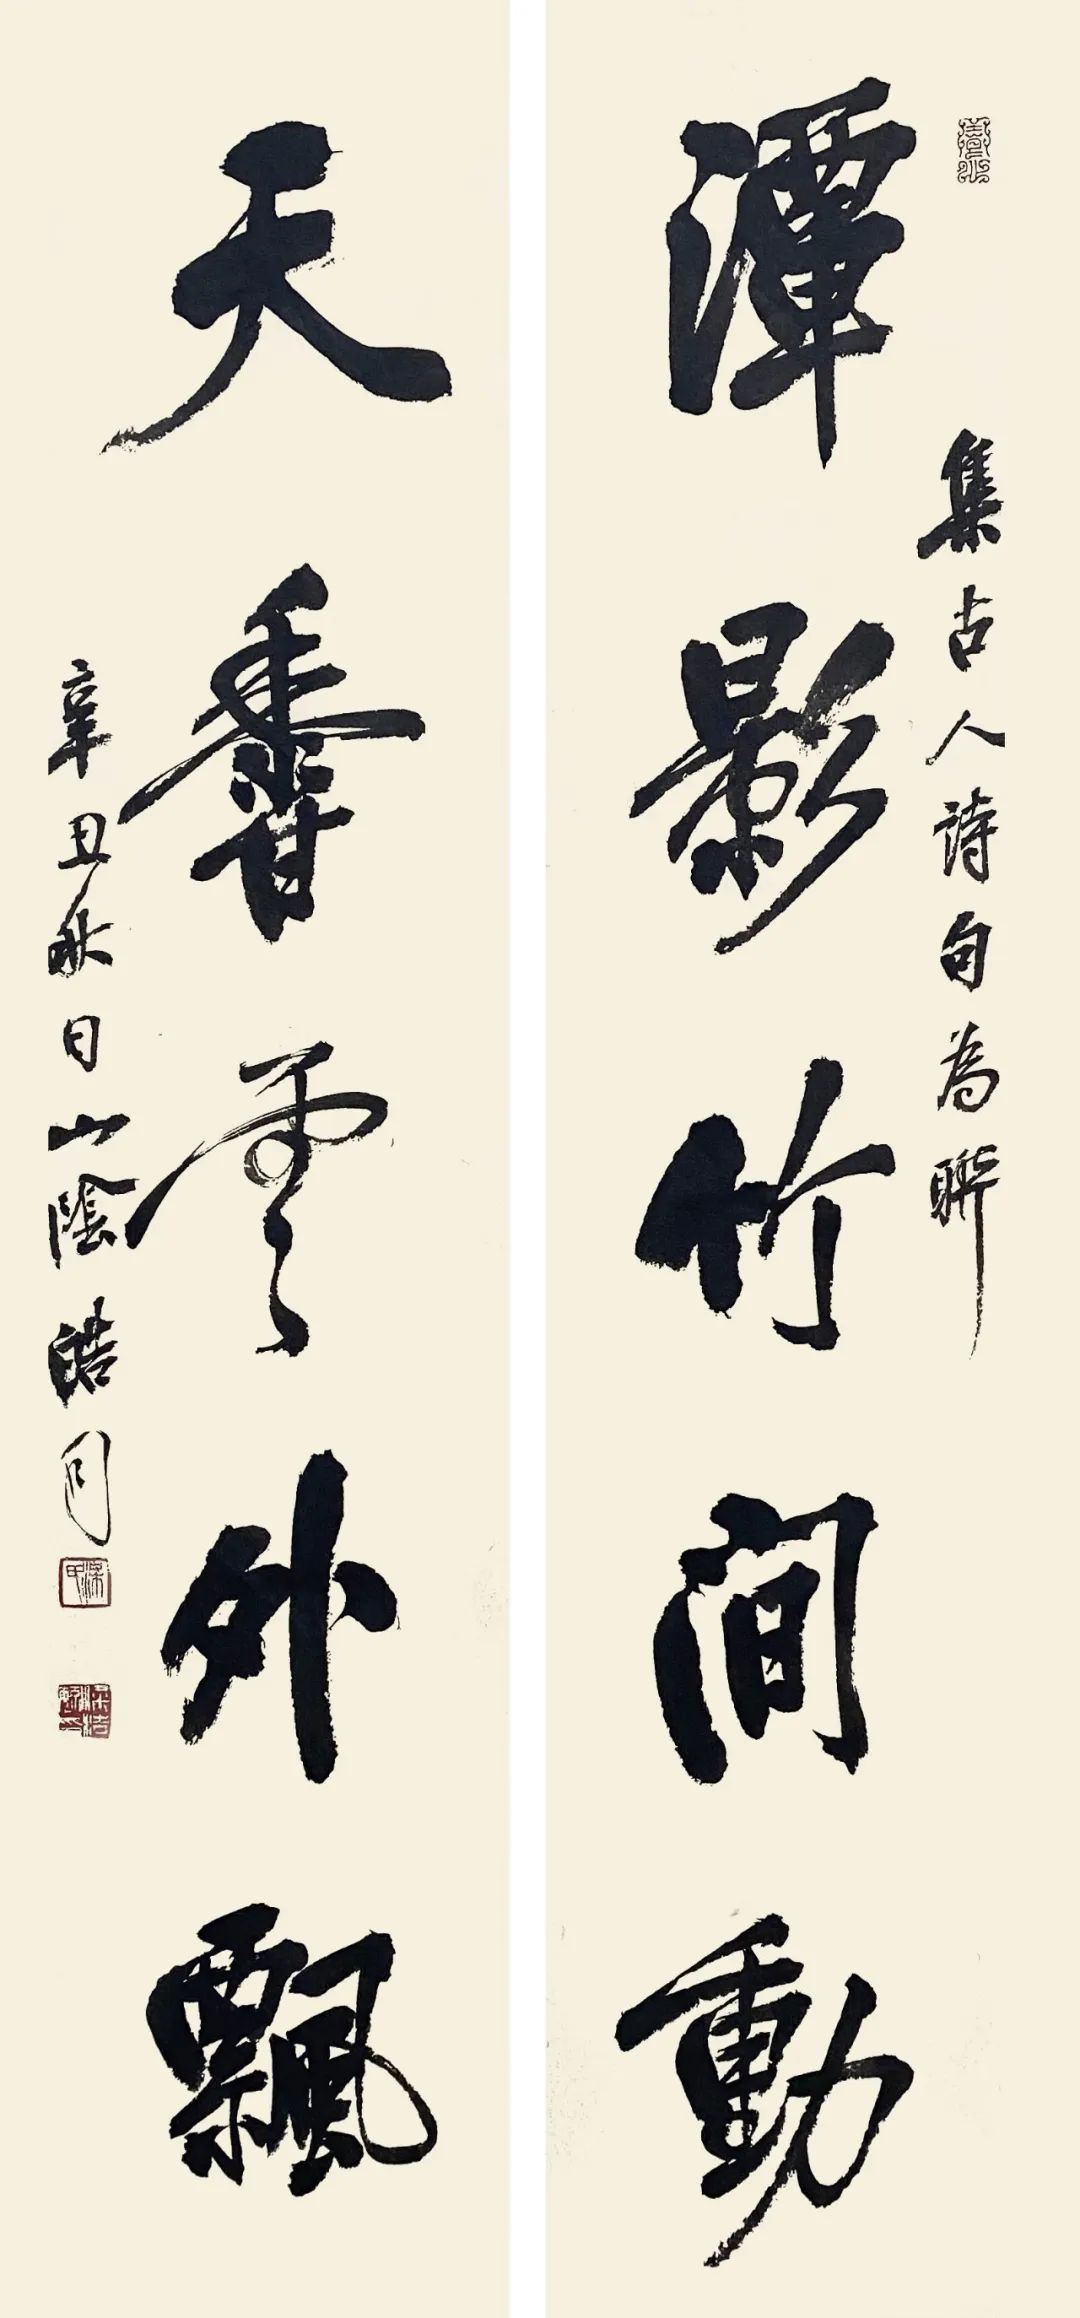 潭影竹間動
集古人詩句為聯
天香雲外飄
辛丑秋日山陰